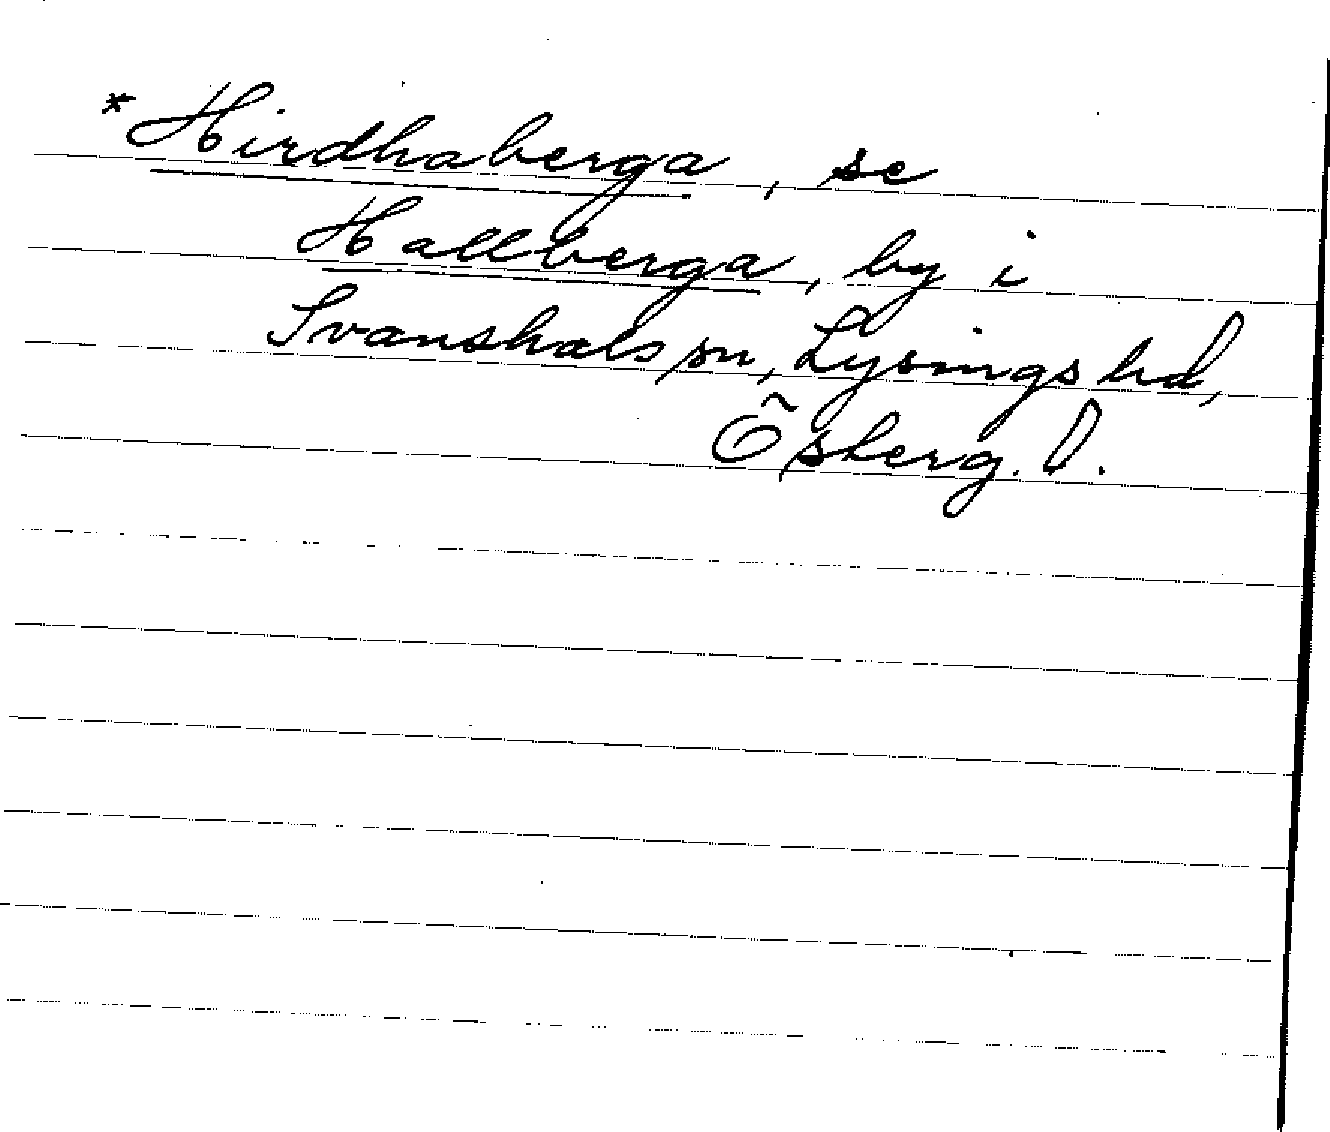 *Hirdhaberga, se
Hallberga, by i
Svanshals sn, Lysings hd,
Östergö. l.